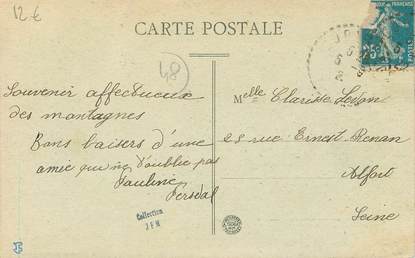 12 €
CARTE POSTALE
48
Souvenir affectueux
des montagnes
Bons baisers d'une
amie qui ne t'oublie pas
Pauline
Melle Clarisse
25 rue Ernest Renan
Alfort
Seine
Collection
JFM